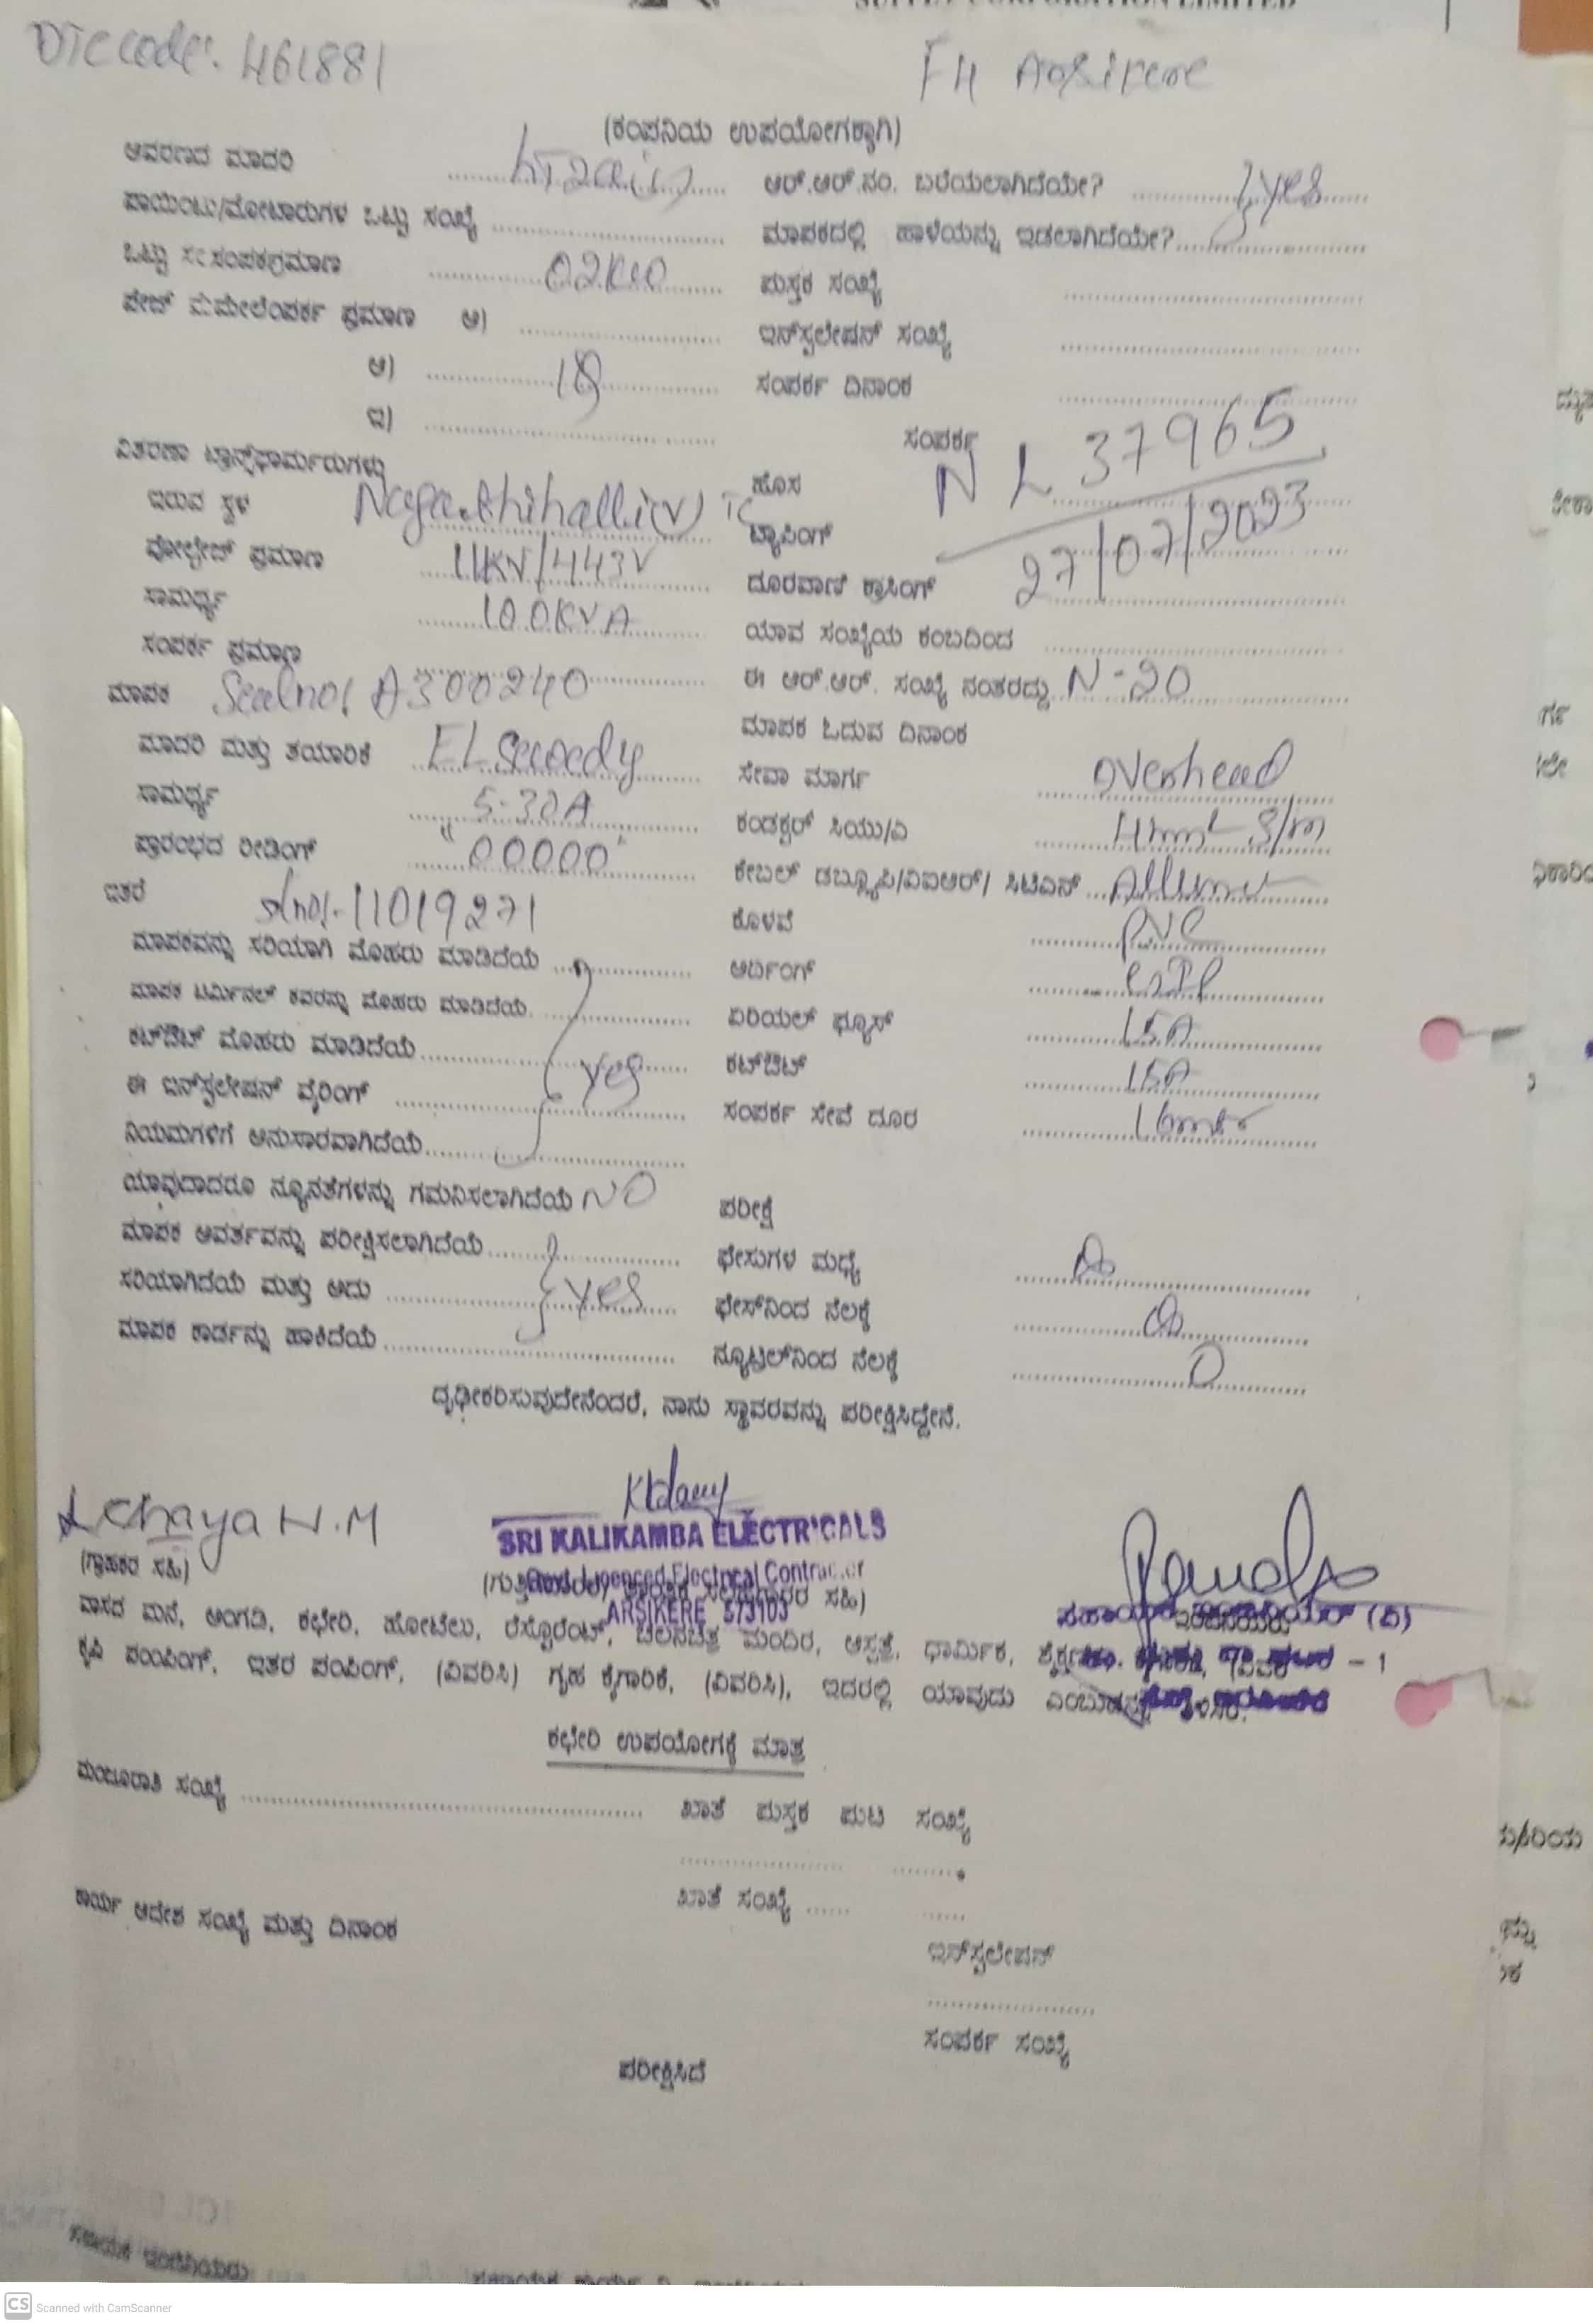 DTC code: 461881
F4 Arsikere
(ಕಂಪನಿಯ ಉಪಯೋಗಕ್ಕಾಗಿ)
ಆವರಣದ ಮಾದರಿ LT2a(i) ಆರ್.ಆರ್.ನಂ. ಬರೆಯಲಾಗಿದೆಯೇ? yes
ಪಾಯಿಂಟು/ಮೋಟಾರುಗಳ ಒಟ್ಟು ಸಂಖ್ಯೆ ಮಾಪಕದಲ್ಲಿ ಹಾಳೆಯನ್ನು ಇಡಲಾಗಿದೆಯೇ?
ಒಟ್ಟು ಸಂಪರ್ಕಪ್ರಮಾಣ 02KW ಪುಸ್ತಕ ಸಂಖ್ಯೆ
ಪೇಜ್ ಪ್ರಮಾಣ ಅ) ಇನ್‌ಸ್ಟಲೇಷನ್ ಸಂಖ್ಯೆ
ಆ) ಸಂಪರ್ಕ ದಿನಾಂಕ
ಇ) ಸಂಪರ್ಕ
ವಿತರಣಾ ಟ್ರಾನ್ಸ್‌ಫಾರ್ಮರುಗಳು NL 37965
ಇರುವ ಸ್ಥಳ Nagathihalli(V) TC ಹೊಸ
ಟ್ಯಾಪಿಂಗ್ 27/07/2023
ವೋಲ್ಟೇಜ್ ಪ್ರಮಾಣ 11KV/443V ದೂರವಾಣಿ ಕ್ರಾಸಿಂಗ್
ಸಾಮರ್ಥ್ಯ 100KVA ಯಾವ ಸಂಖ್ಯೆಯ ಕಂಬದಿಂದ
ಸಂಪರ್ಕ ಪ್ರಮಾಣ ಈ ಆರ್.ಆರ್. ಸಂಖ್ಯೆ ನಂತರದ್ದು N-20
ಮಾಪಕ Seal no: A300240 ಮಾಪಕ ಓದುವ ದಿನಾಂಕ
ಮಾದರಿ ಮತ್ತು ತಯಾರಿಕೆ EL Sewedy ಸೇವಾ ಮಾರ್ಗ overhead
ಸಾಮರ್ಥ್ಯ 5-30A ಕಂಡಕ್ಟರ್ ಸಿಯು/ಎ
ಪ್ರಾರಂಭದ ರೀಡಿಂಗ್ "00000" ಕೇಬಲ್ ಡಬ್ಲ್ಯೂಪಿ/ವಿಐಆರ್/ ಸಿಟಿಎಸ್
ಇತರೆ slno:-11019271 ಕೊಳವೆ PVC
ಮಾಪಕವನ್ನು ಸರಿಯಾಗಿ ಮೊಹರು ಮಾಡಿದೆಯೆ ಅರ್ದಿಂಗ್
ಮಾಪಕ ಟರ್ಮಿನಲ್ ಕವರನ್ನು ಮೊಹರು ಮಾಡಿದೆಯೆ ಏರಿಯಲ್ ಫ್ಯೂಸ್ 15A
ಕಟ್‌ಔಟ್ ಮೊಹರು ಮಾಡಿದೆಯೆ yes ಕಟ್‌ಔಟ್ 15A
ಈ ಇನ್‌ಸ್ಟಲೇಷನ್ ವೈರಿಂಗ್ ಸಂಪರ್ಕ ಸೇವೆ ದೂರ
ನಿಯಮಗಳಿಗೆ ಅನುಸಾರವಾಗಿದೆಯೆ
ಯಾವುದಾದರೂ ನ್ಯೂನತೆಗಳನ್ನು ಗಮನಿಸಲಾಗಿದೆಯೆ NO ಪರೀಕ್ಷೆ
ಮಾಪಕ ಆವರ್ತವನ್ನು ಪರೀಕ್ಷಿಸಲಾಗಿದೆಯೆ ಫೇಸುಗಳ ಮಧ್ಯೆ
ಸರಿಯಾಗಿದೆಯೆ ಮತ್ತು ಅದು yes ಫೇಸ್‌ನಿಂದ ನೆಲಕ್ಕೆ
ಮಾಪಕ ಕಾರ್ಡನ್ನು ಹಾಕಿದೆಯೆ ನ್ಯೂಟ್ರಲ್‌ನಿಂದ ನೆಲಕ್ಕೆ 0
ದೃಢೀಕರಿಸುವುದೇನೆಂದರೆ, ನಾನು ಸ್ಥಾವರವನ್ನು ಪರೀಕ್ಷಿಸಿದ್ದೇನೆ.
chaya N.M
SRI KALIKAMBA ELECTRICALS
(ಗ್ರಾಹಕರ ಸಹಿ)
Govt. Licenced Electrical Contractor
ARSIKERE 573103
ವಾಸದ ಮನೆ, ಅಂಗಡಿ, ಕಛೇರಿ, ಹೋಟೆಲು, ರೆಸ್ಟೊರೆಂಟ್, ಚಲನಚಿತ್ರ ಮಂದಿರ, ಆಸ್ಪತ್ರೆ, ಧಾರ್ಮಿಕ,
ಕೃಷಿ ಪಂಪಿಂಗ್, ಇತರ ಪಂಪಿಂಗ್, (ವಿವರಿಸಿ) ಗೃಹ ಕೈಗಾರಿಕೆ, (ವಿವರಿಸಿ), ಇದರಲ್ಲಿ ಯಾವುದು
ಕಛೇರಿ ಉಪಯೋಗಕ್ಕೆ ಮಾತ್ರ
ಮಂಜೂರಾತಿ ಸಂಖ್ಯೆ ಖಾತೆ ಪುಸ್ತಕ ಪುಟ ಸಂಖ್ಯೆ
ಕಾರ್ಯ ಆದೇಶ ಸಂಖ್ಯೆ ಮತ್ತು ದಿನಾಂಕ ಖಾತೆ ಸಂಖ್ಯೆ
ಇನ್‌ಸ್ಟಲೇಷನ್
ಸಂಪರ್ಕ ಸಂಖ್ಯೆ
ಪರೀಕ್ಷಿಸಿದೆ
CS Scanned with CamScanner